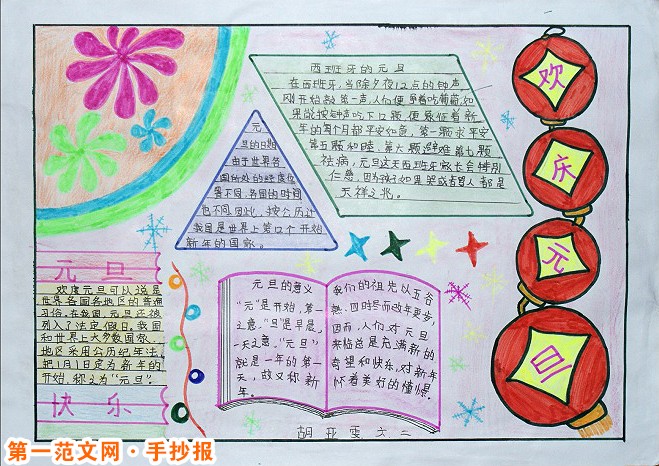 西班牙的元旦
在西班牙,当除夕夜12点的钟声
刚开始敲第一声,人们便争着吃葡萄,如
果能按钟声吃下12颗,便象征着新
年的每个月都平安如意,第一颗求平安
第五颗和睦,第六颗避难第七颗
祛病,元旦这天西班牙家长会特别
仁慈,因为孩子如果哭或者骂人都是
不祥之兆。
元
旦的日期
由于世界各
国所处的经度位
置不同,各国的时间
也不同因此,按公历计
我国是世界上第12个开始
新年的国家。
欢
庆
元
旦
元旦
欢度元旦可以说是
世界各国各地区的普遍
习俗,在我国,元旦还被
列入了法定假日,我国
和世界上大多数国家
地区采用公历纪年法,
把1月1日定为新年的
开始,称之为“元旦”。
快乐
元旦的意义
“元”是开始,第一
之意,“旦”是早晨,
一天之意。“元旦”
就是一年的第一
天,故又称新
年。
我们的祖先以五谷
熟,四时尽而改年更岁,
因而,人们对元旦
来临总是充满新的
希望和快乐,对新年
怀着美好的憧憬。
胡亚雯 六二
第一范文网·手抄报